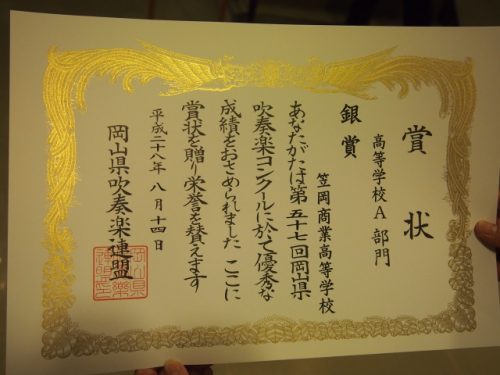 賞状
高等学校A部門
銀賞
笠岡商業高等学校
あなたがたは第五十七回岡山県
吹奏楽コンクールに於て優秀な
成績をおさめられました ここに
賞状を贈り栄誉を賛えます
平成二十八年 八月十四日
岡山県吹奏楽連盟